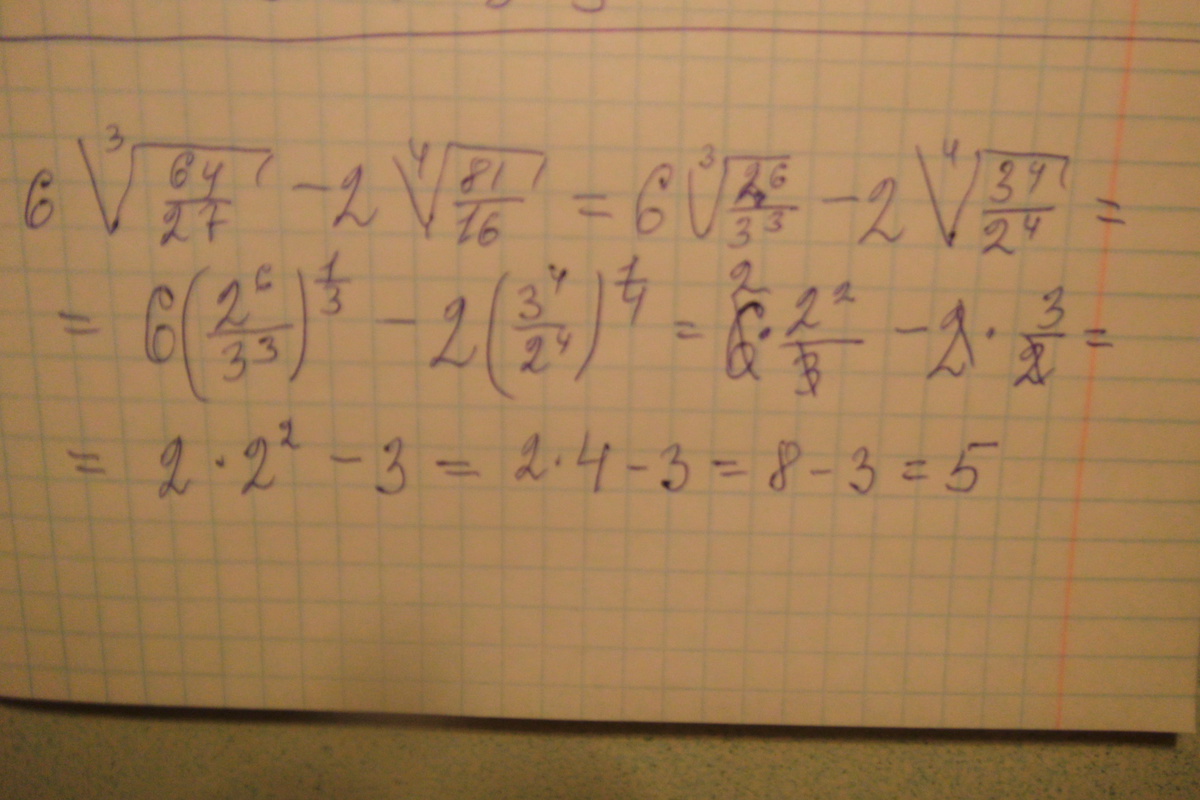 6 ∛(64/27) − 2 ∜(81/16) = 6 ∛(2⁶/3³) − 2 ∜(3⁴/2⁴) =
= 6 (2⁶/3³)^(1/3) − 2 (3⁴/2⁴)^(1/4) = 6² · 2²/3 − 2 · 3/2 =
= 2 · 2² − 3 = 2 · 4 − 3 = 8 − 3 = 5